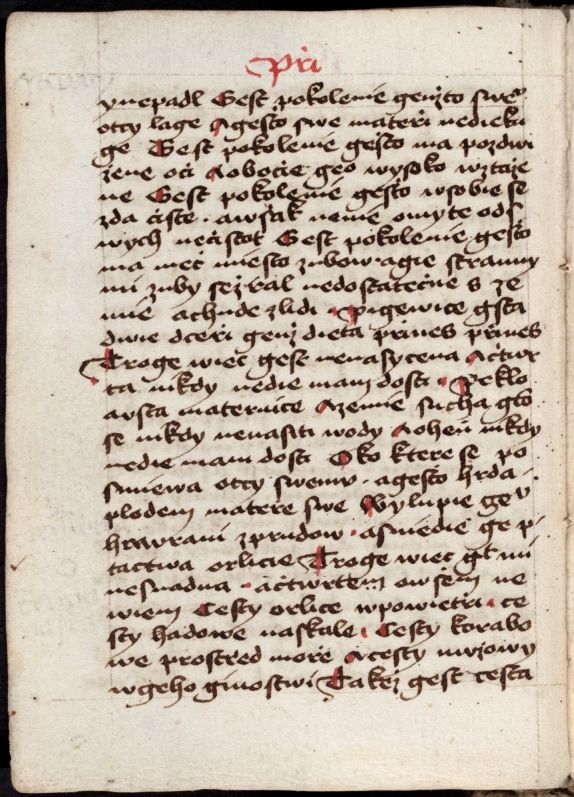 Při
ynepadl Gest pokolenie genžto swe͛
otcy lage Agešto swe mateři nedieku
ge Gest pokolenie gešto ma pozdwi
žene oči Aobočie geo wysoko wztaže
ne Gest pokolenie gešto wsobie se
zda čisté · awšak nenie omyte od s
wych nečistot Gest pokolenie gešto
ma meč miesto zubow · agie stranny
mi zuby sežral nedostatečne s ze
mie achude zlidi · Pigewice gsta
dwie dceři genž dieta prines prines
Troge wiec gest nenasycena Ačtwr
ta nikdy nedie mam dosti · Peklo
avsta maternice Azemie sucha gto
se nikdy nenasiti wody Aoheň nikdy
nedie mam dosti Oko ktere se po
smiewa otcy swemu · agešto hrda ·
plodem matere swe Wylupie ge v
hrawrani zprudow · asniedie ge p
tactwa orlicie Troge wiec gt mi
nesnadna · ačtwrtem owšem ne
wiem Cesty orlice wpowietři · ce
sty hadowe naskale · Cesty korabo
we prostřed moře Acesty mužowy
wgeho ginostwi Takež gest cesta